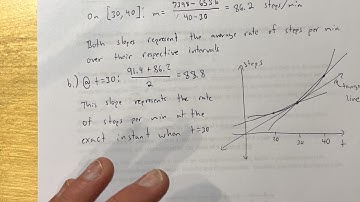 On [30, 40]: m = 7398-6536 / 40-30 = 86.2 steps/min
Both slopes represent the average rate of steps per min
over their respective intervals
b.) @ t=30: 91.4+86.2 / 2 = 88.8
This slope represents the rate
of steps per min at the
exact instant when t=30
steps
tangent
line
20 30 40 t